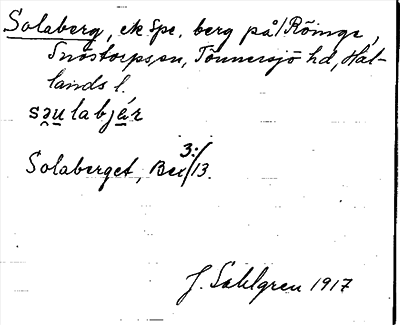 Solaberg, ek Spe. berg på Röinge,
Snöstorps sn, Tönnersjö hd, Hal-
lands l.
səu̯labjǽr
Solaberget, Bec 3:/13.
J. Sahlgren 1917